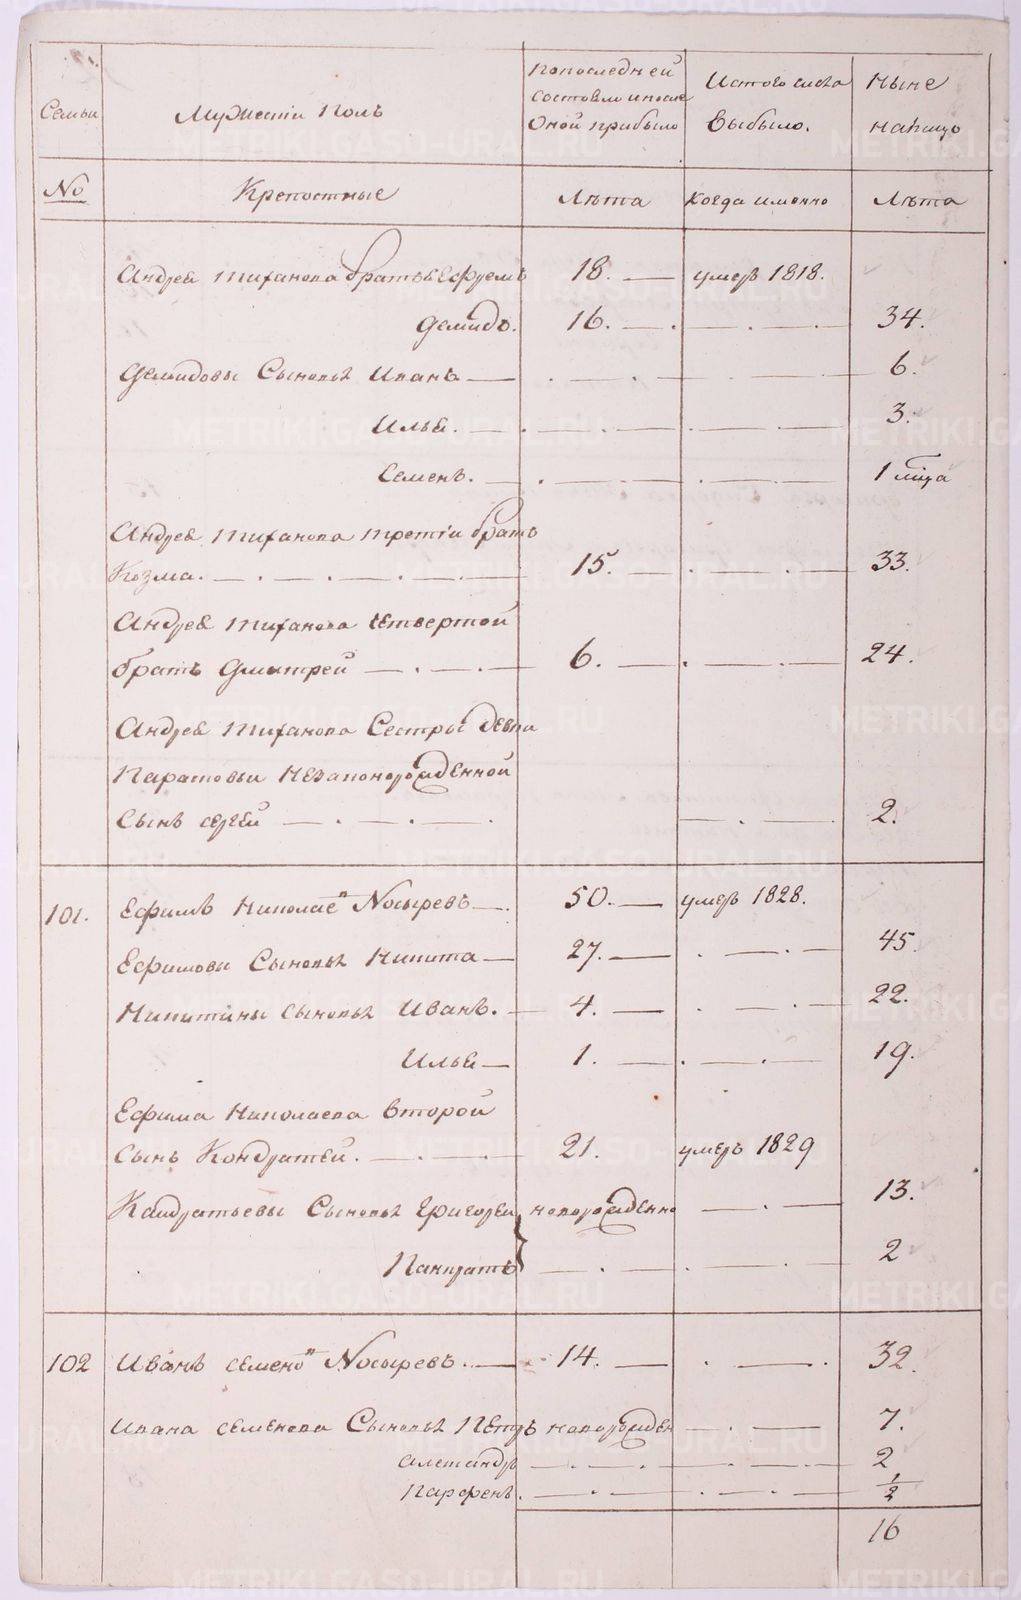 Семьи
Мужескiй полъ
попоследней
состояло ипосле
Оной прибыло
Истого числа
выбыло.
Ныне
налицо
No
Крепостные
Лѣта
Когда именно
Лѣта
Андрея Тиханова братья Ефремъ 18. умеръ 1818.
Демидъ. 16. 34.
Демидовы Сыновья Иванъ 6.
Илья. 3.
Семенъ. 1 м҃ца
Андрея Тиханова третiй братъ
Козма. 15. 33.
Андрея Тиханова четвертой
братъ Дмитрей 6. 24.
Андрея Тиханова Сестры девки
Незаконорожденной
Сынъ сергей 2.
101. Ефимъ Николаевъ Носыревъ 50. умеръ 1828.
Ефимовы Сыновья Никита 27. 45.
Никитины сыновья Иванъ. 4. 22.
Илья 1. 19.
Ефима Николаева второй
сынъ Кондратей. 21. умеръ 1829
Кандратьевы Сыновья Григорей новорожденно 13.
Панкратъ 2
102 Иванъ семеновъ Носыревъ. 14. 32.
Ивана семенова Сыновья Петръ новорожден 7.
алетандръ 2
Парфенъ. 1/2
16
METRIKI.GASO-URAL.RU